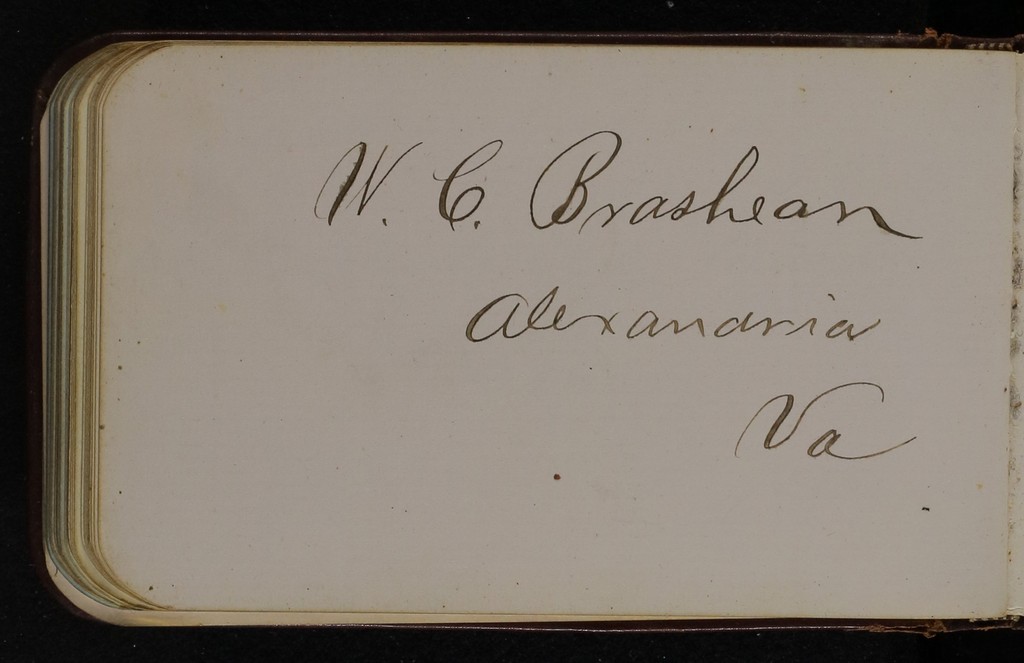 W. C. Brashear
Alexandria
Va